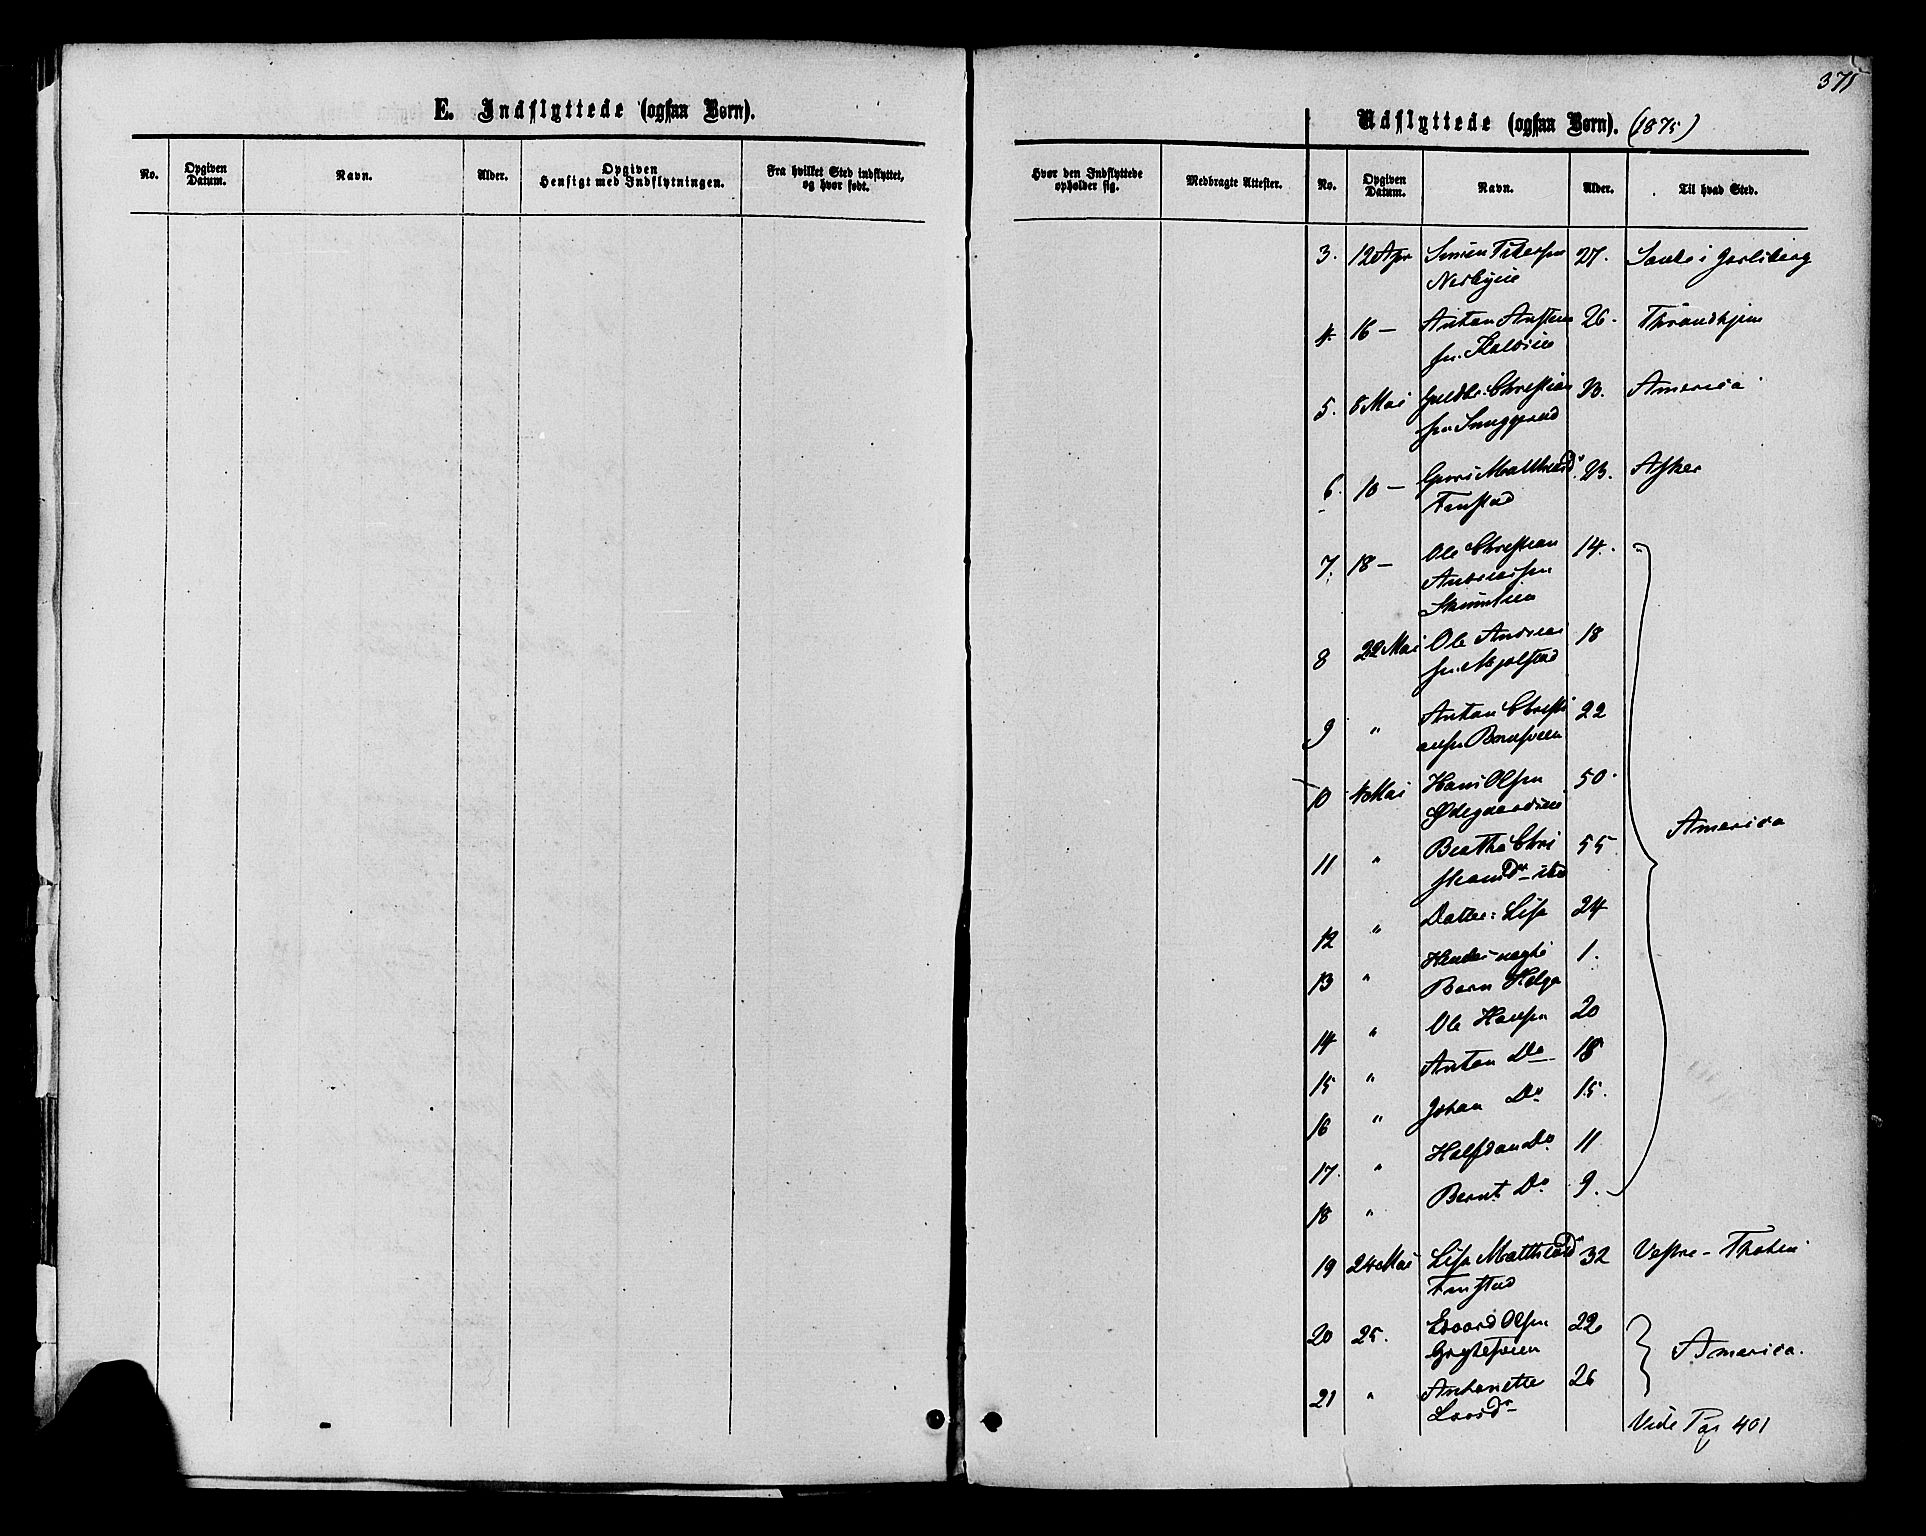 375
E. Indflyttede (ogsaa Børn).
No.
Opgiven Datum.
Navn.
Alder.
Opgiven Hensigt med Indflytningen.
Fra hvilket Sted indflyttet, og hvor født.
Udflyttede (ogsaa Børn). (1875)
Hvor den Indflyttede opholder sig.
Medbragte Attester.
No.
Opgiven Datum.
Navn.
Alder.
Til hvad Sted.
3. 12 Apr Simen Petersen 27. Sande i Jarlsberg
4. 16 – Anton 26. Throndhjem
5. 8 Mai Christian 23. America
sen
6. 10 – Matthisd. 23. Asker
Fenstad
7. 18 – Ole Christian 14. "
Andreassen
8 22 Mai Ole Andrea 18
9 " Anton Christi 22
ansen
10 4 Mai Hans Olsen 50.
Ødegaardseie
11 " Beathe Chri 55.
12 " Datter: Lise 24
Hendes uægte 1.
13 " Barn Helga
14 " Ole Hansen 20
15 " Anton Do 18
16 " Johan Do 15.
17. " Halfdan Do. 11
18 " Bernt Do 9.
America
19 24 Mai Lise Matthisd 32 Vestre-Thoten
Fenstad
20 25. Edvard Olsen 22
21 " Antonette 26
Larsd
America.
Vide Pag 401